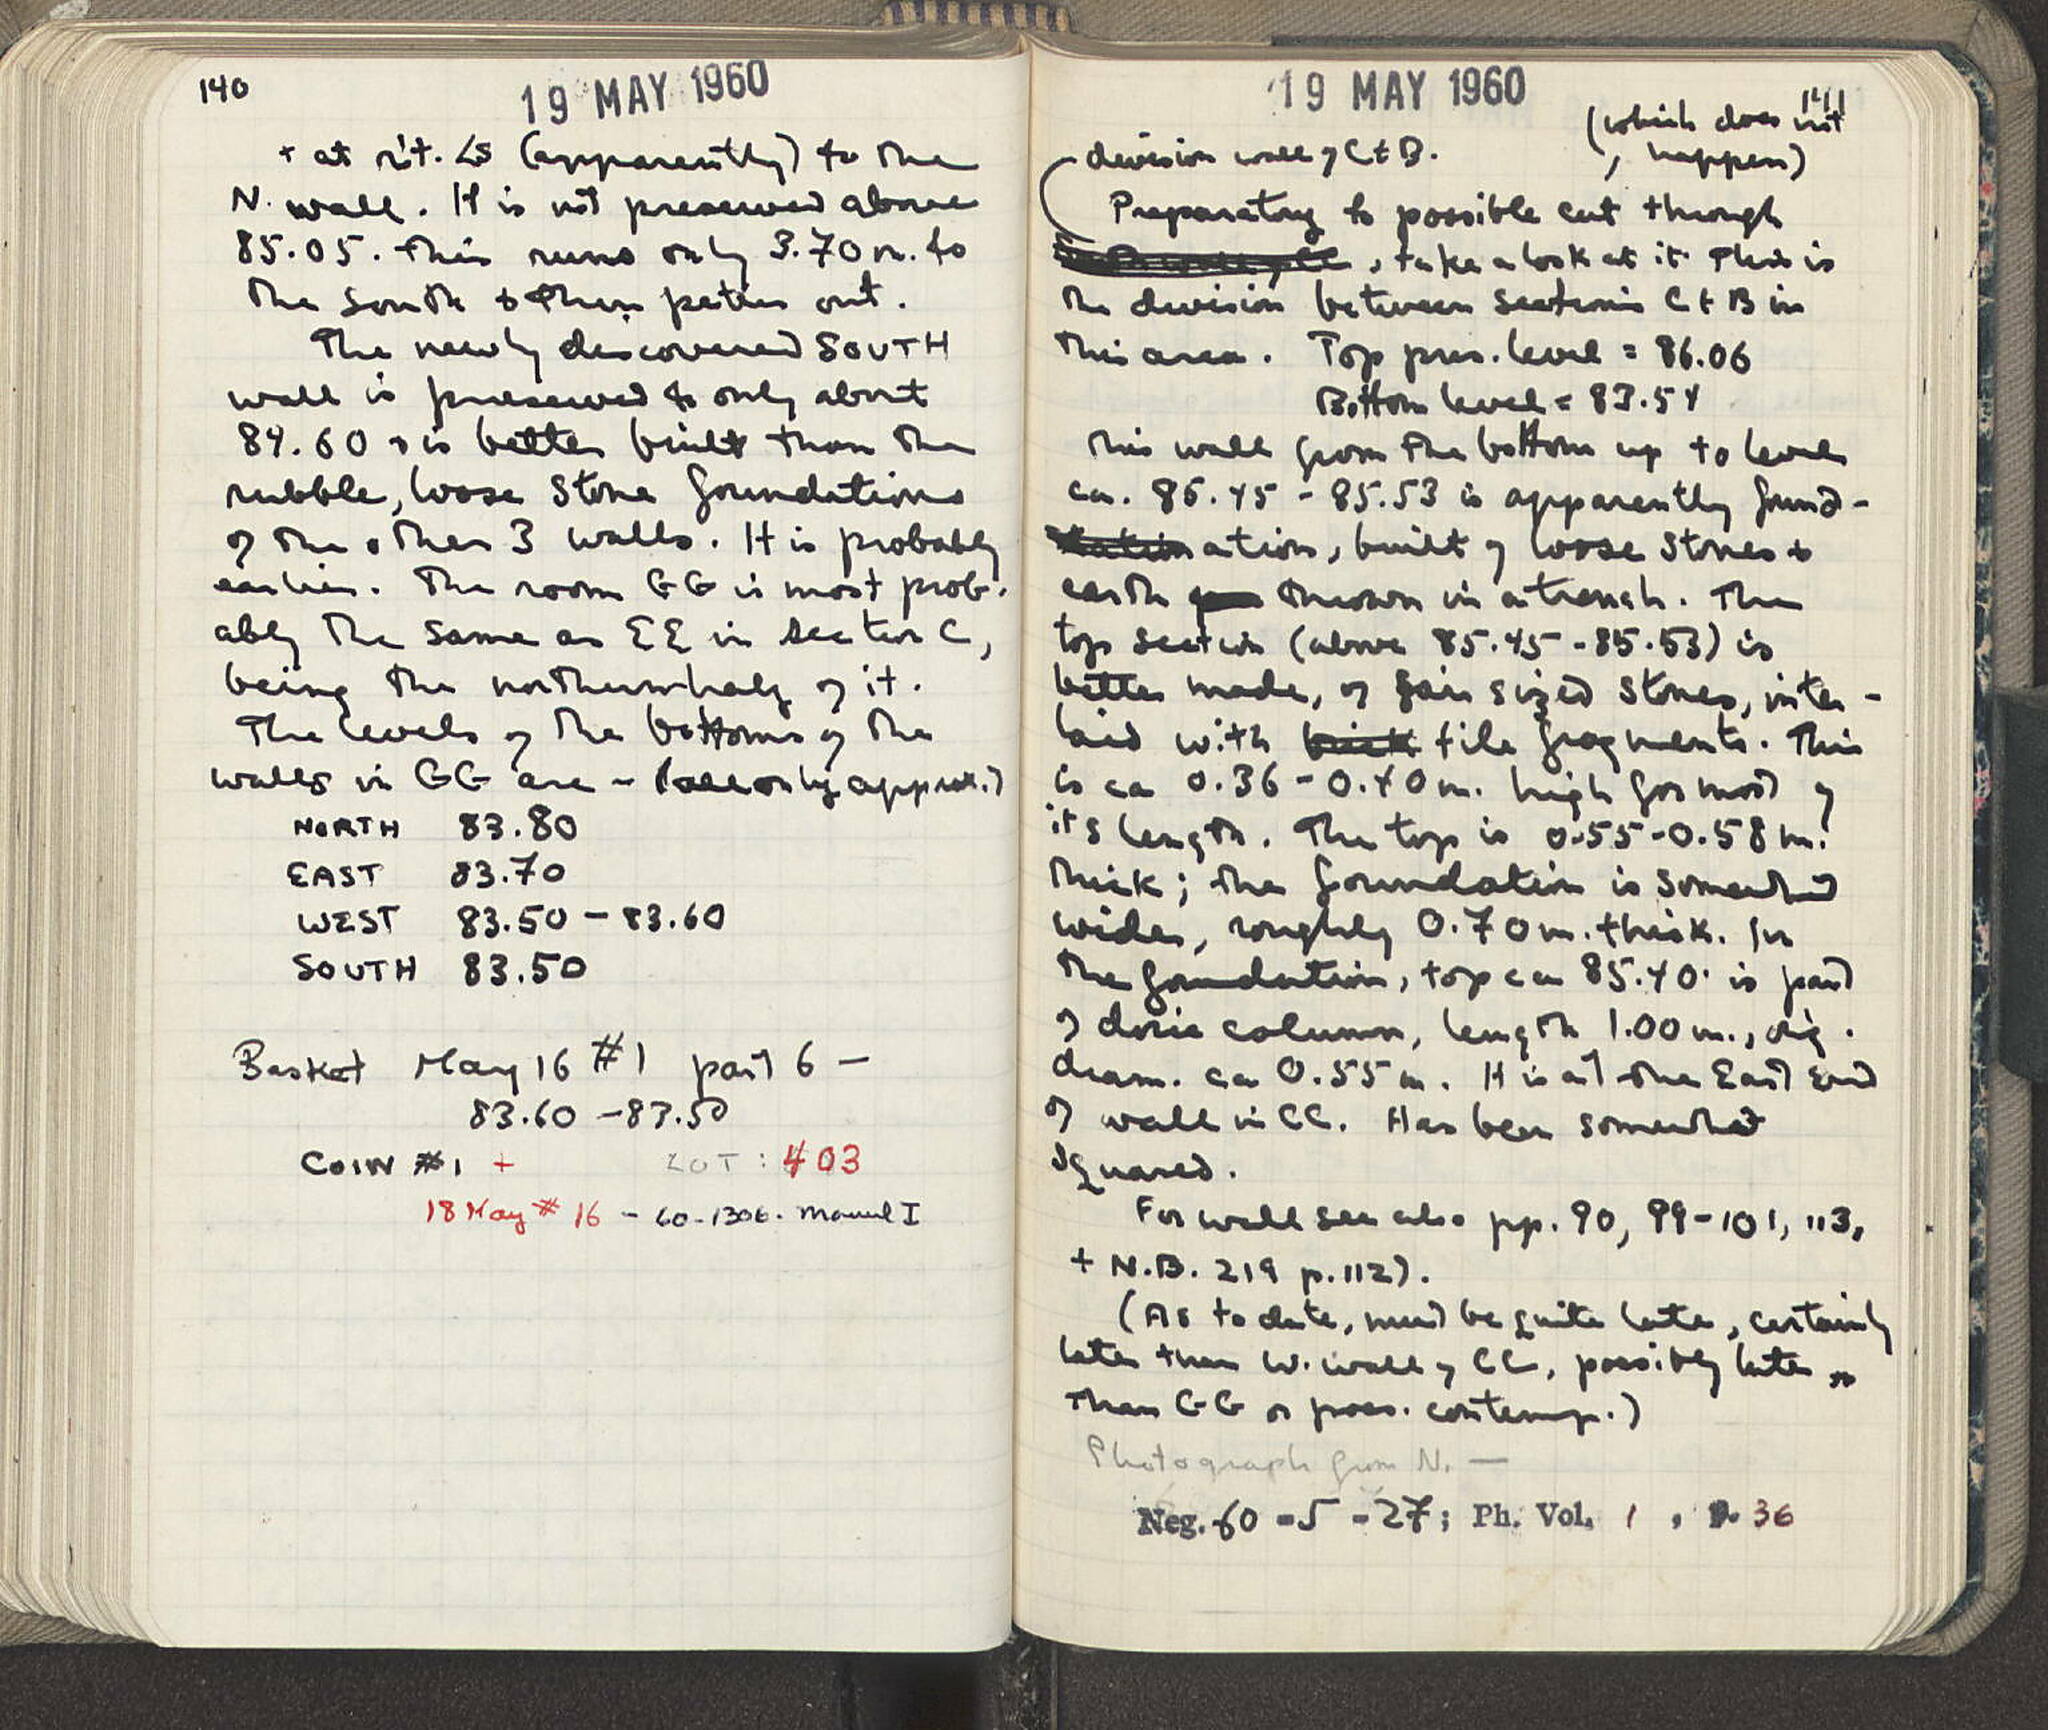 140
19 MAY 1960
+ at rt. ∠s (apparently) to the
N. wall. It is not preserved above
85.05. This runs only 3.70 m. to
the south & then peters out.
The newly discovered SOUTH
wall is preserved to only about
84.60 & is better built than the
rubble, loose stone foundations
of the other 3 walls. It is probably
earlier. The room GG is most prob-
ably the same as EE in section C,
being the northern half of it.
The levels of the bottoms of the
walls in GG are - (all only approx.)
NORTH 83.80
EAST 83.70
WEST 83.50 - 83.60
SOUTH 83.50
Basket May 16 #1 part 6 -
83.60 - 83.50
COIN #1 + LOT: 403
18 May # 16 - 60-1306. Manuel I
19 MAY 1960
141
(which does not
division wall of C + B. , happen)
Preparatory to possible cut through
, take a look at it. This is
the division between sections C + B in
this area. Top pres. level = 86.06
Bottom level = 83.54
This wall from the bottom up to level
ca. 85.45 - 85.53 is apparently found-
ation, built of loose stones &
earth thrown in a trench. The
top section (above 85.45 - 85.53) is
better made, of fair sized stones, inter-
laid with brick tile fragments. This
is ca 0.36 - 0.40 m. high for most of
its length. The top is 0.55 - 0.58 m.
thick; the foundation is somewhat
wider, roughly 0.70 m. thick. In
the foundation, top ca 85.40 is part
of doric column, length 1.00 m., orig.
diam. ca 0.55 m. It is at the East end
of wall in CC. Has been somewhat
squared.
For wall see also pp. 90, 99-101, 113,
+ N.B. 219 p. 112).
(As to date, must be quite late, certainly
later than W. wall of CC, possibly later
than GG or poss. contemp.)
Photograph from N. —
Neg. 60 - 5 - 27; Ph. Vol. 1, p. 36